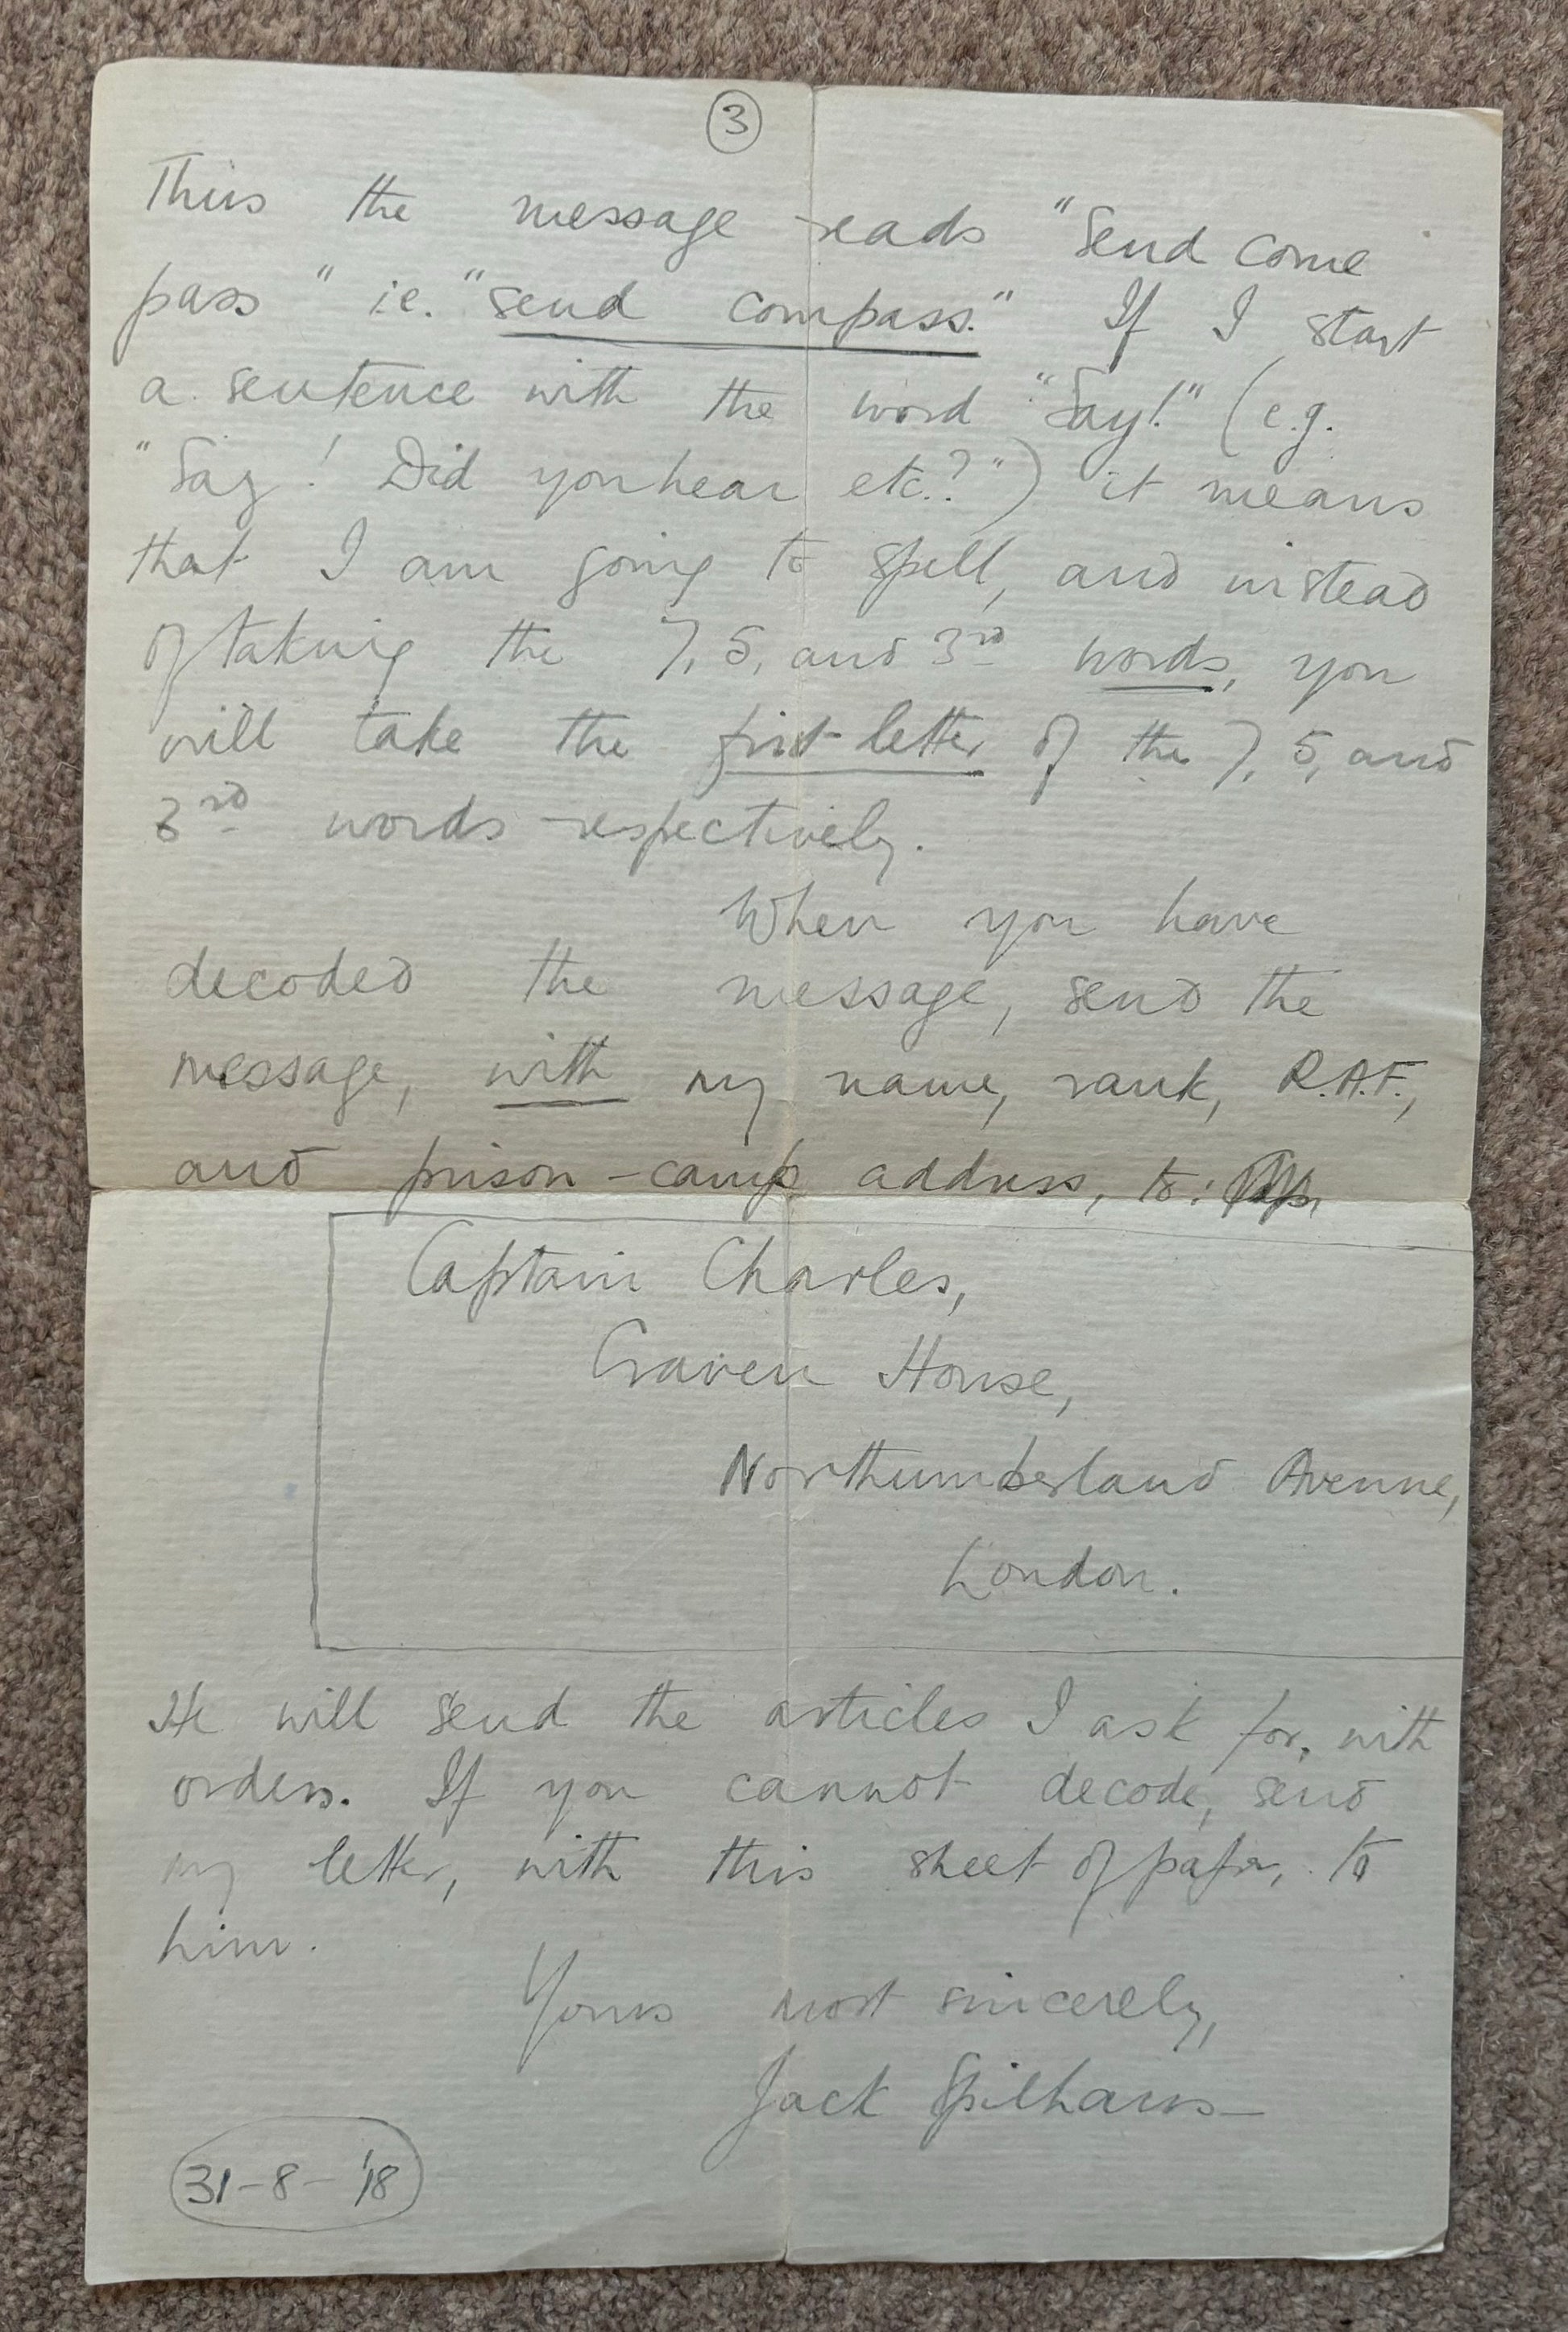 3
Thus the message reads "Send come
pass" i.e. "send compass." If I start
a sentence with the word "Say!" (e.g.
"Say! Did you hear etc.?") it means
that I am going to spell, and instead
of taking the 7, 5, and 3rd words, you
will take the first letter of the 7, 5, and
3rd words respectively.
When you have
decoded the message, send the
message, with my name, rank, R.A.F.,
and prison-camp address, to:
Captain Charles,
Craven House,
Northumberland Avenue,
London.
He will send the articles I ask for, with
orders. If you cannot decode, send
my letter, with this sheet of paper, to
him.
Yours most sincerely,
Jack Spilhaus
31-8-'18